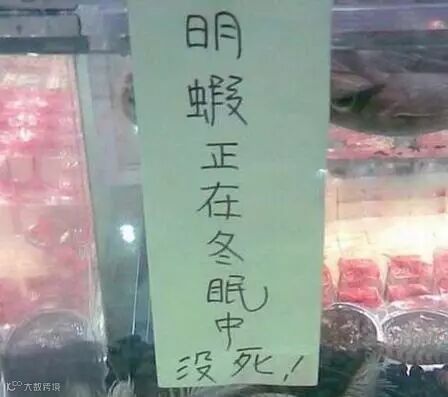 明蝦正在冬眠中
没死!
大数跨境